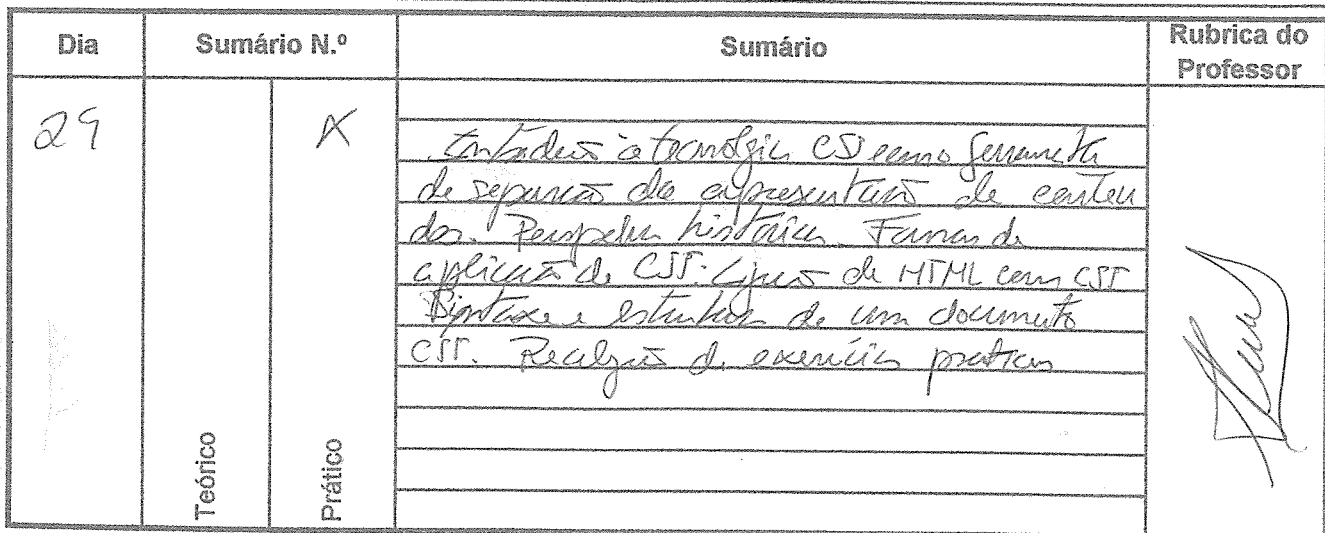 Dia Sumário N.º Sumário Rubrica do Professor
29 X
Introdução à tecnologia CSS como ferramenta
de separação da apresentação de conteu
dos. Perspectiva histórica. Formas de
aplicação de CSS. Ligação de HTML com CSS
Sintaxe e estrutura de um documento
CSS. Realização de exercícios praticos
Teórico
Prático